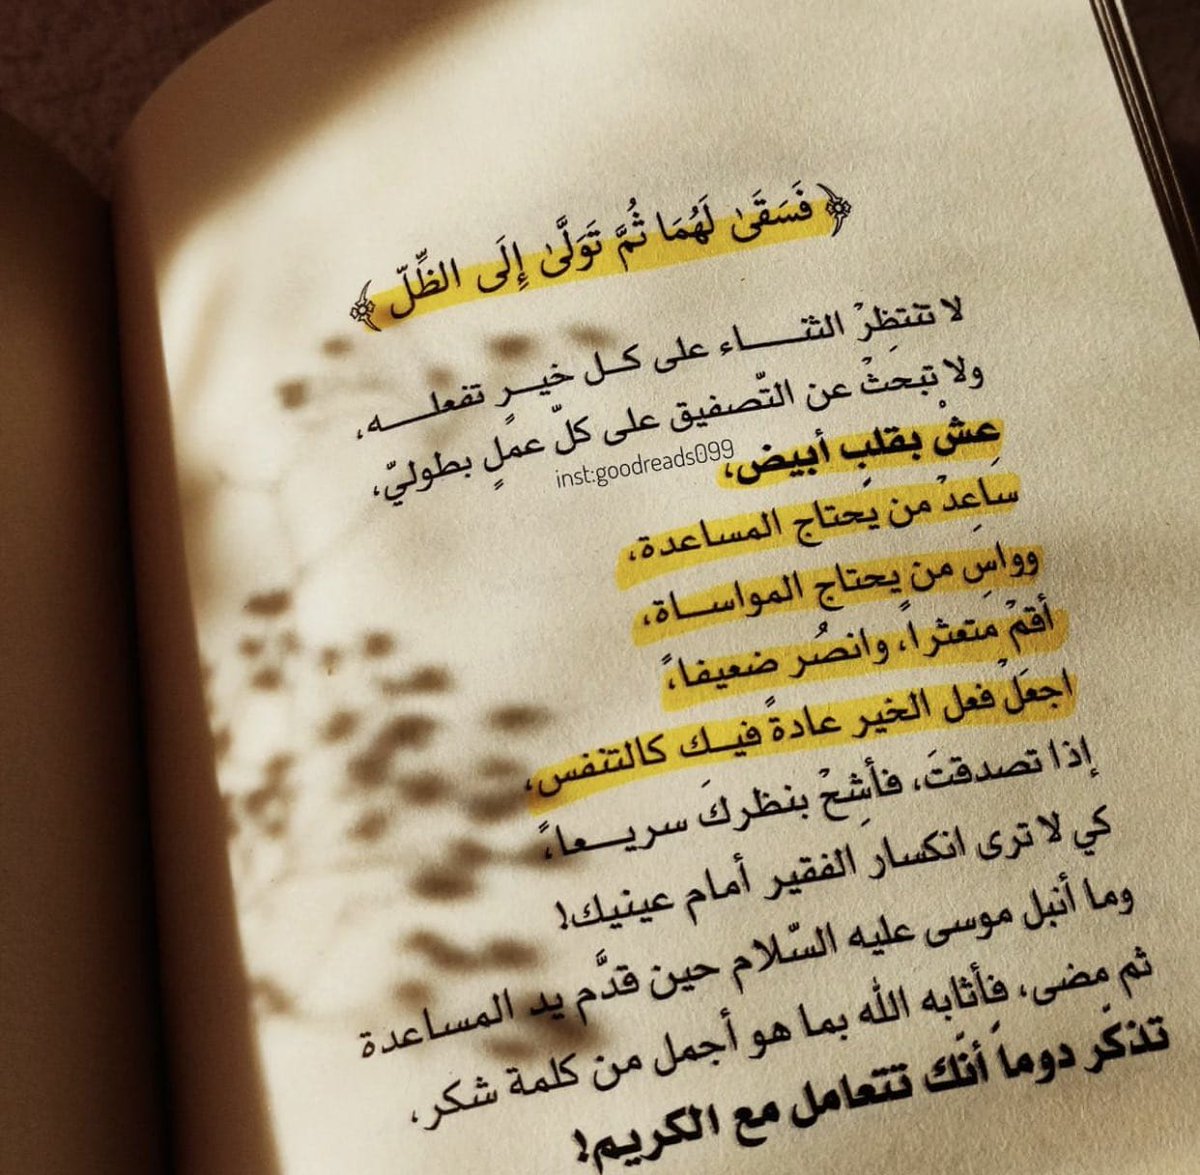 ﴿فَسَقَىٰ لَهُمَا ثُمَّ تَوَلَّىٰ إِلَى الظِّلّ﴾
لا تنتظِرْ الثنـــاء على كـل خيـرٍ تفعلـــه،
ولا تبحثْ عن التّصفيق على كلّ عملٍ بطوليّ،
عِشْ بقلبٍ أبيض،
inst:goodreads099
ساعِدْ من يحتاج المساعدة،
وواسِ من يحتاج المواســاة،
أقمْ متعثراً، وانصُر ضعيفاً،
اجعَلْ فعل الخير عادةً فيـك كالتنفس،
إذا تصدقتَ، فأشِحْ بنظركَ سريـــعاً،
كي لا ترى انكسار الفقير أمام عينيك!
وما أنبل موسى عليه السّلام حين قدَّم يد المساعدة
ثم مضى، فأثابه الله بما هو أجمل من كلمة شكر،
تذكّر دوماً أنّك تتعامل مع الكريم!